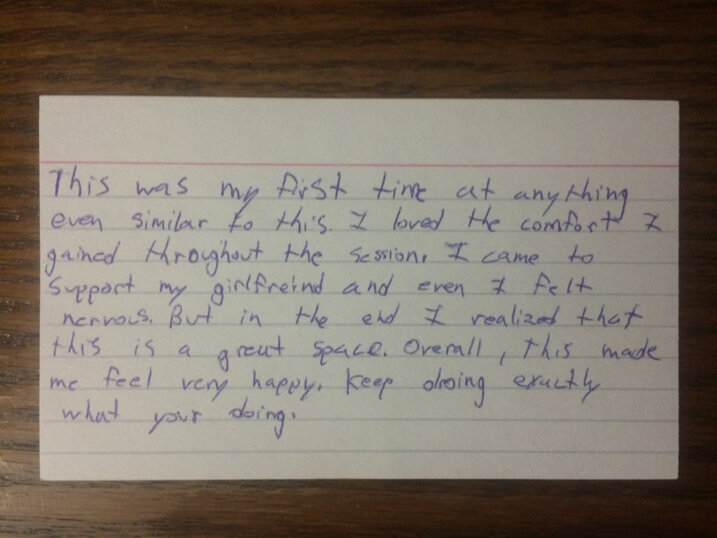 This was my first time at anything
even similar to this. I loved the comfort I
gained throughout the session. I came to
Support my girlfreind and even I felt
nervous. But in the end I realized that
this is a great space. Overall, this made
me feel very happy. Keep doing exactly
what your doing.